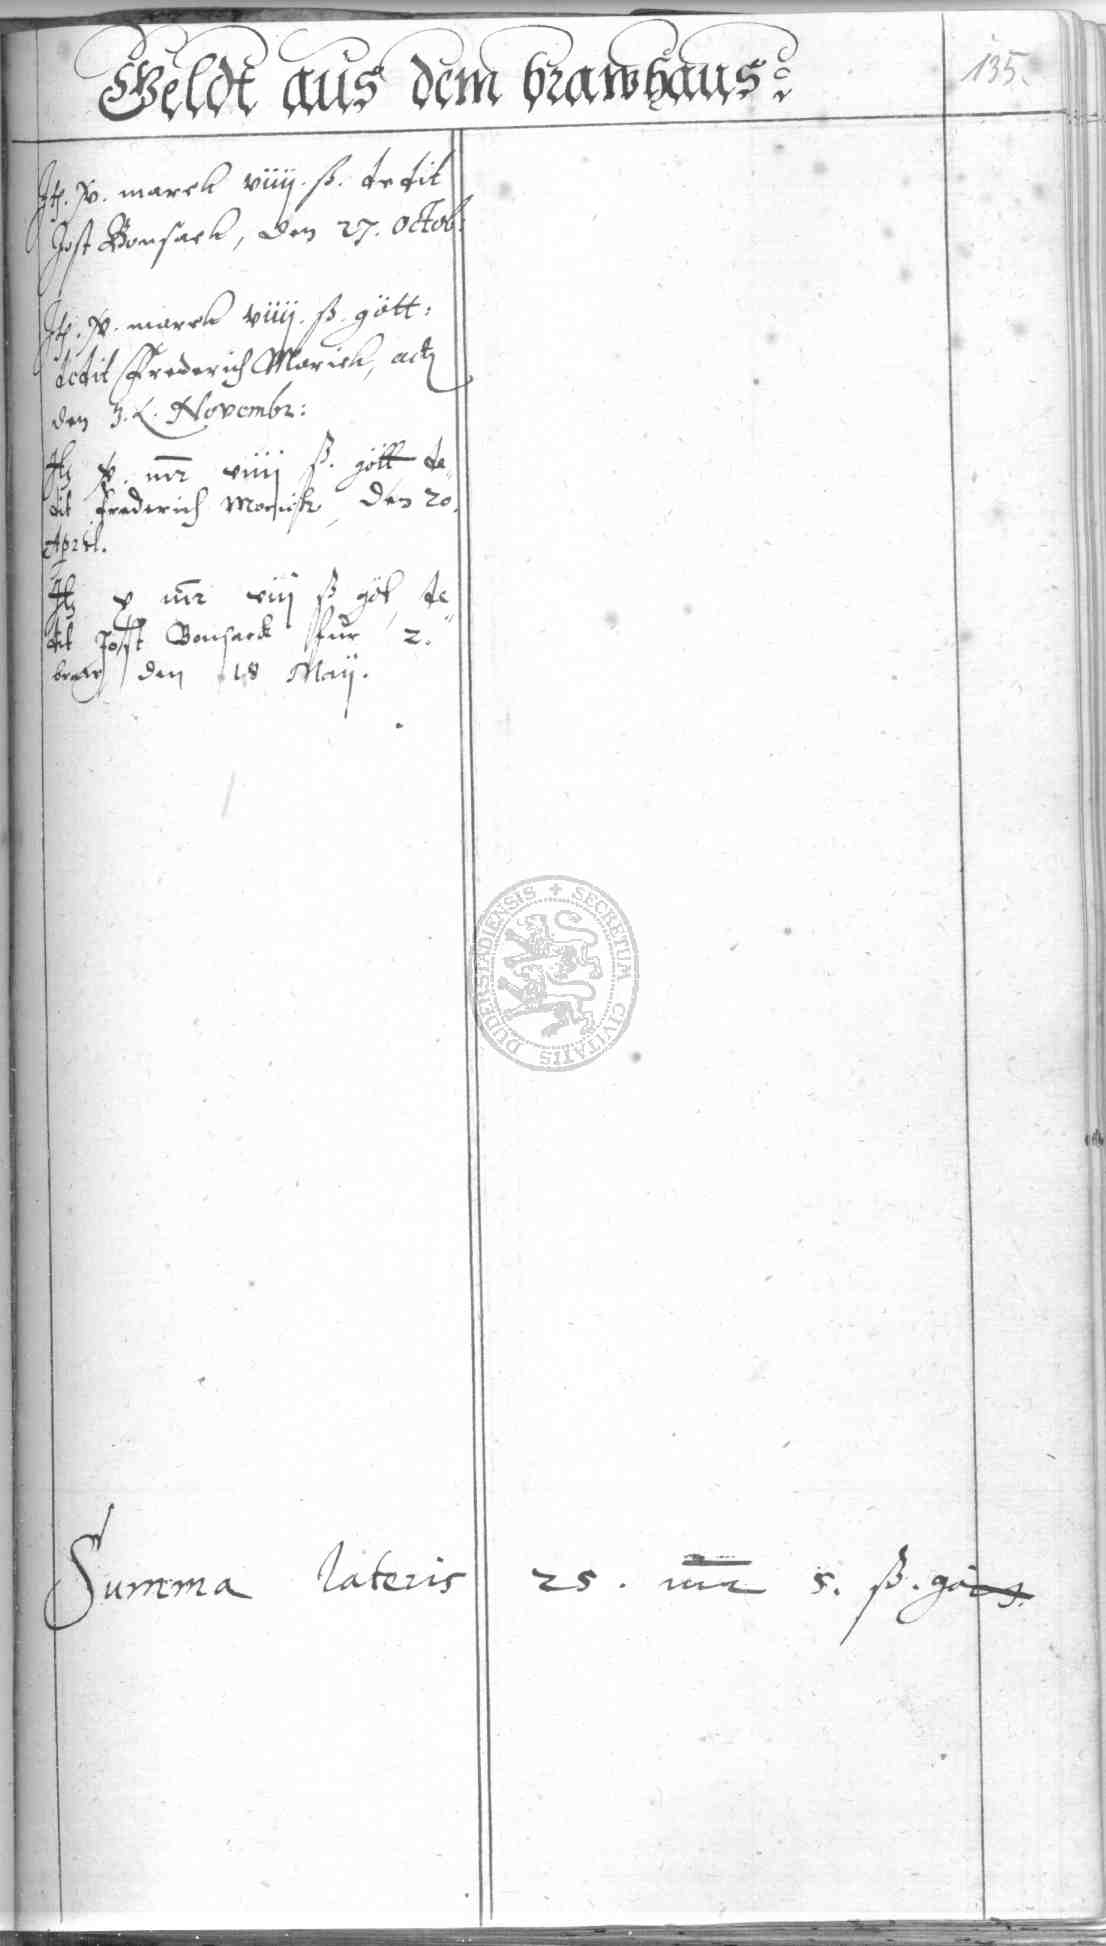 Geldt aus dem brawhaus:
135.
Jtz. marck viiij. ß. dedit
Jost Bonsack, den 27. Octob:
Jtz. marck viiij. ß. gött:
dedit Frederich Morick,
den 3. Novembr:
Jtz mr viiij ß. gött de-
dit Frederich Morick, den 20.
April.
Jtz v mr viij ß göt de-
dit Jost Bonsack für 2.
braw den 18 Maij.
Summa lateris 25. mr 5. ß. göts.
SECRETUM CIVITATIS DUDERSTADIENSIS